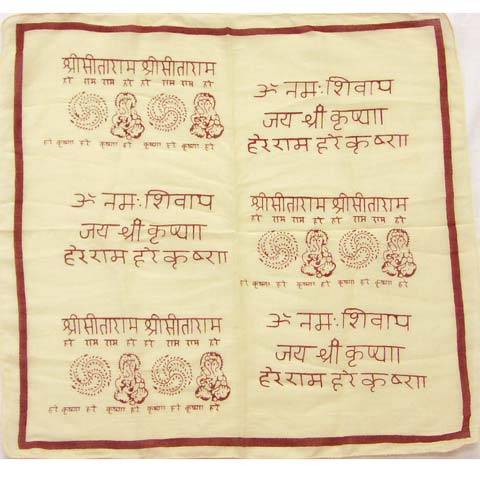 श्रीसीताराम श्रीसीताराम
हरे राम राम हरे राम राम हरे
हरे कृष्णा हरे कृष्णा कृष्णा हरे
ॐ नमःशिवाय
जय श्री कृष्णा
हेरराम हरे कृष्णा
ॐ नमःशिवाय
जय श्री कृष्णा
हेरराम हरे कृष्णा
श्रीसीताराम श्रीसीताराम
हरे राम राम हरे हरे राम राम हरे
हरे कृष्णा हरे कृष्णा कृष्णा हरे
श्रीसीताराम श्रीसीताराम
हरे राम राम हरे हरे राम राम हरे
हरे कृष्णा हरे कृष्णा कृष्णा हरे
ॐ नमःशिवाय
जय श्री कृष्णा
हेरराम हरे कृष्णा